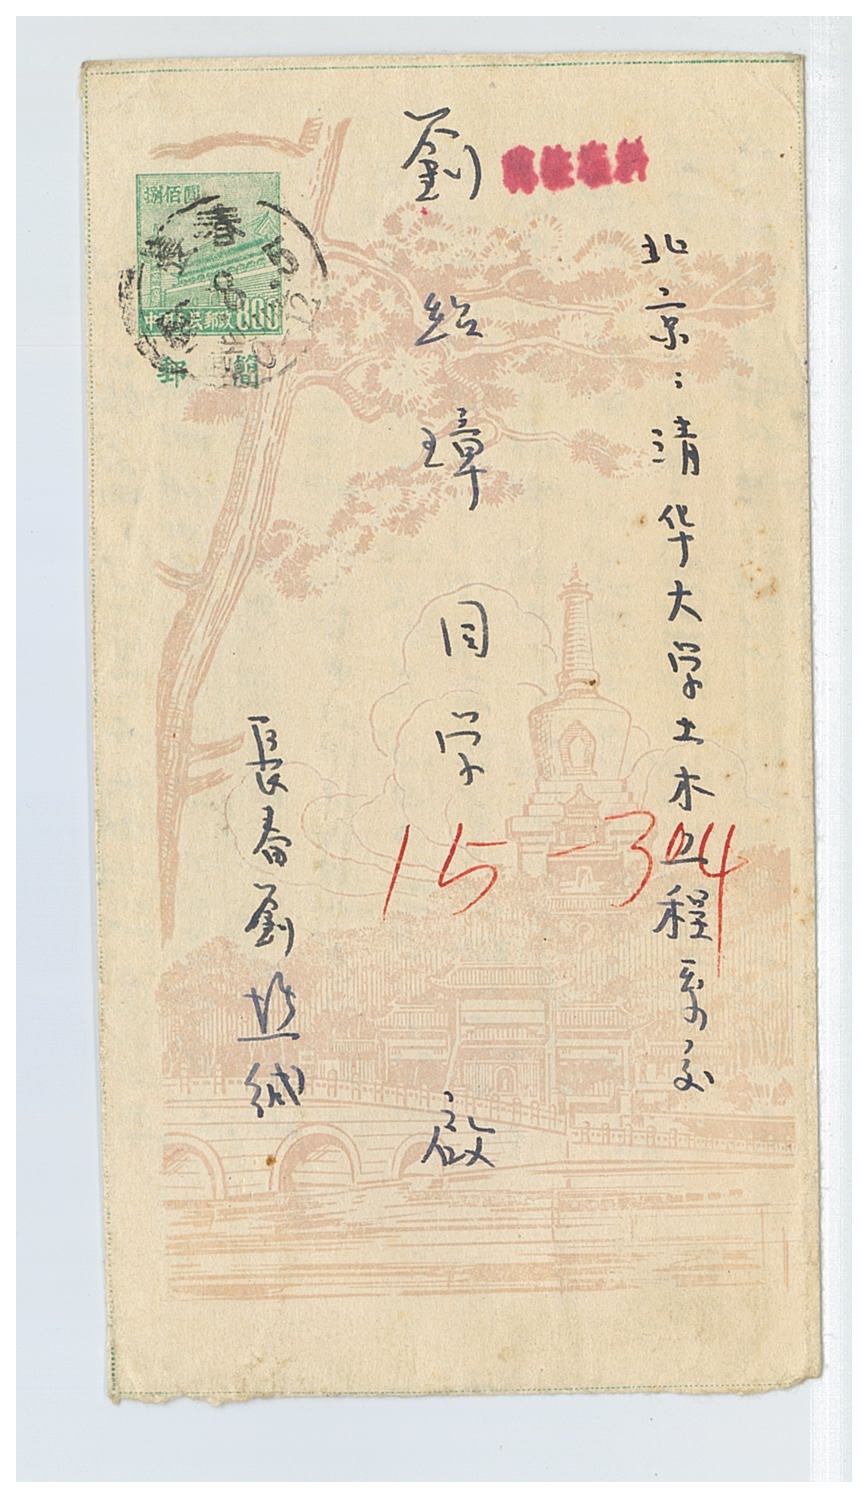 北京:清华大学土木工程系交
劉紹璋同学 啟
15-304
長春劉 緘
捌佰圓
中 郵政 800
郵簡
春